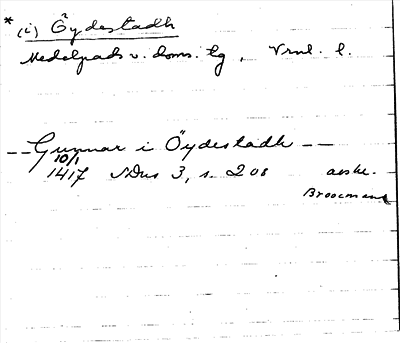 * (i) Öydestadh
Medelpads v. doms. tg, Vrml. l.
-- Gunnar i Öydestadh --
10/1
1417 SDns 3, s. 208 avskr.
Broocman